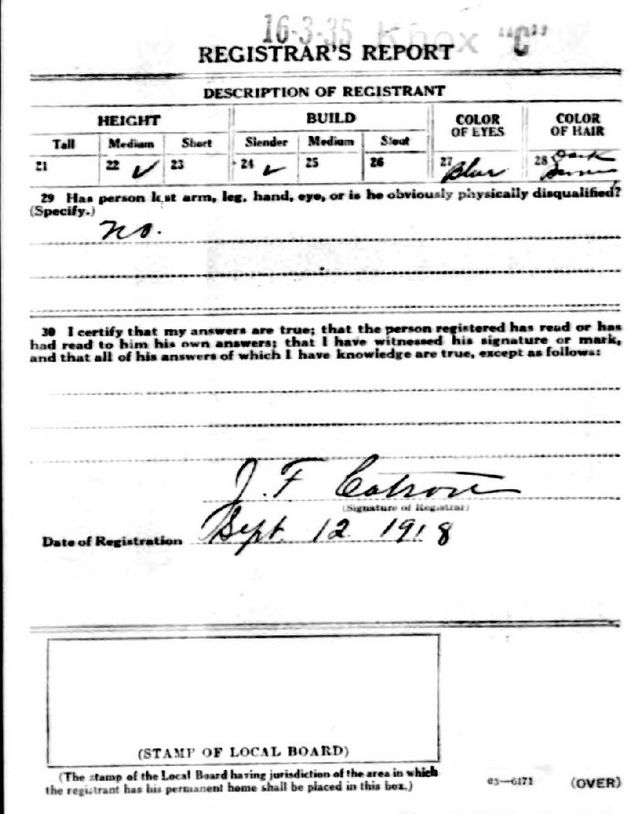 16-3-35 Knox "C"
REGISTRAR'S REPORT
DESCRIPTION OF REGISTRANT
HEIGHT BUILD COLOR OF EYES COLOR OF HAIR
Tall Medium Short Slender Medium Stout
21 22 ✓ 23 24 ✓ 25 26 27 Blue 28 Dark
29 Has person lost arm, leg, hand, eye, or is he obviously physically disqualified?
(Specify.)
No.
30 I certify that my answers are true; that the person registered has read or has
had read to him his own answers; that I have witnessed his signature or mark,
and that all of his answers of which I have knowledge are true, except as follows:
J. F. Catron
(Signature of Registrar)
Date of Registration Sept. 12 1918
(STAMP OF LOCAL BOARD)
(The stamp of the Local Board having jurisdiction of the area in which
the registrant has his permanent home shall be placed in this box.)
03—6171 (OVER)